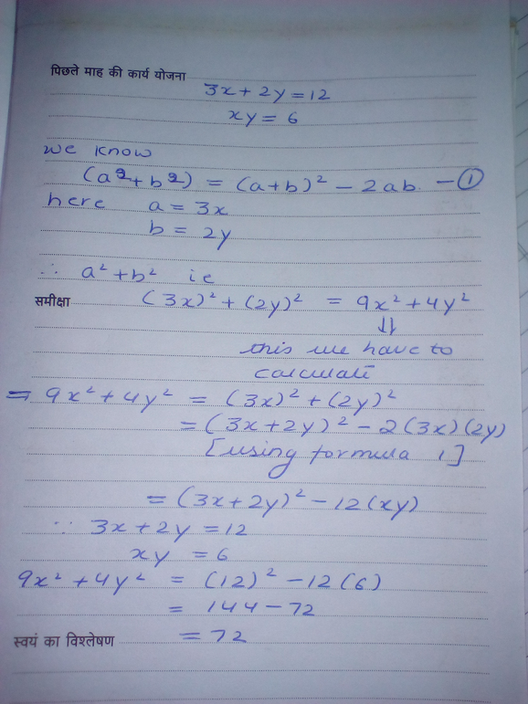 पिछले माह की कार्य योजना
3x + 2y = 12
xy = 6
we know
(a² + b²) = (a+b)² - 2ab. - ①
here a = 3x
b = 2y
∴ a² + b² ie
समीक्षा (3x)² + (2y)² = 9x² + 4y²
⇓
this we have to
calculate
⇒ 9x² + 4y² = (3x)² + (2y)²
= (3x + 2y)² - 2(3x)(2y)
[using formula 1]
= (3x + 2y)² - 12(xy)
∵ 3x + 2y = 12
xy = 6
9x² + 4y² = (12)² - 12(6)
= 144 - 72
स्वयं का विश्लेषण = 72